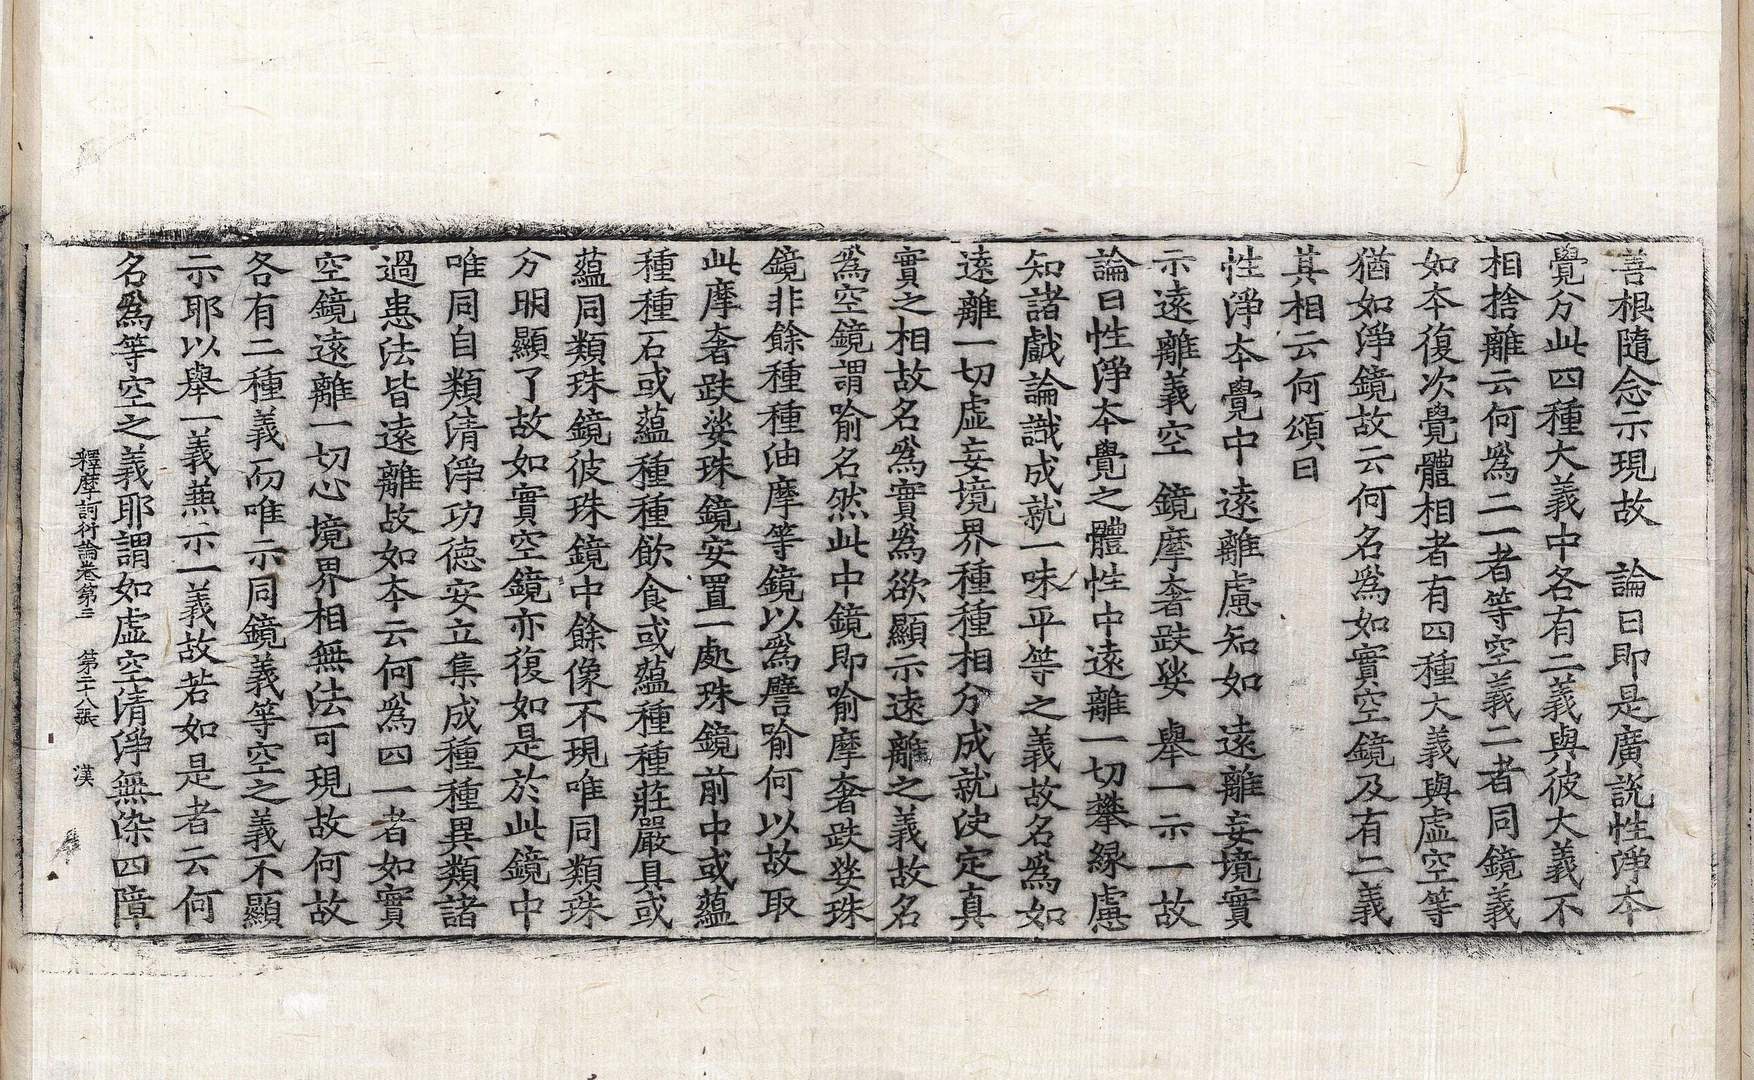 善根隨念示現故　論曰即是廣說性淨本
覺分此四種大義中各有二義與彼大義不
相捨離云何爲二一者等空義二者同鏡義
如本復次覺體相者有四種大義與虛空等
猶如淨鏡故云何名爲如實空鏡及有二義
其相云何頌曰
性淨本覺中　遠離慮知如　遠離妄境實
示遠離義空　鏡摩奢趺娑　舉一示一故
論曰性淨本覺之體性中遠離一切攀緣慮
知諸戲論識成就一味平等之義故名爲如
遠離一切虛妄境界種種相分成就决定真
實之相故名爲實爲欲顯示遠離之義故名
爲空鏡謂喻名然此中鏡即喻摩奢趺娑珠
鏡非餘種種油摩等鏡以爲譬喻何以故取
此摩奢趺娑珠鏡安置一處珠鏡前中或蘊
種種石或蘊種種飲食或蘊種種莊嚴具或
蘊同類珠鏡彼珠鏡中餘像不現唯同類珠
分明顯了故如實空鏡亦復如是於此鏡中
唯同自類清淨功德安立集成種種異類諸
過患法皆遠離故如本云何爲四一者如實
空鏡遠離一切心境界相無法可現故何故
各有二種義而唯示同鏡義等空之義不顯
示耶以舉一義兼示一義故若如是者云何
名爲等空之義耶謂如虛空清淨無染四障
釋摩訶衍論卷第三　第二十八張　漢